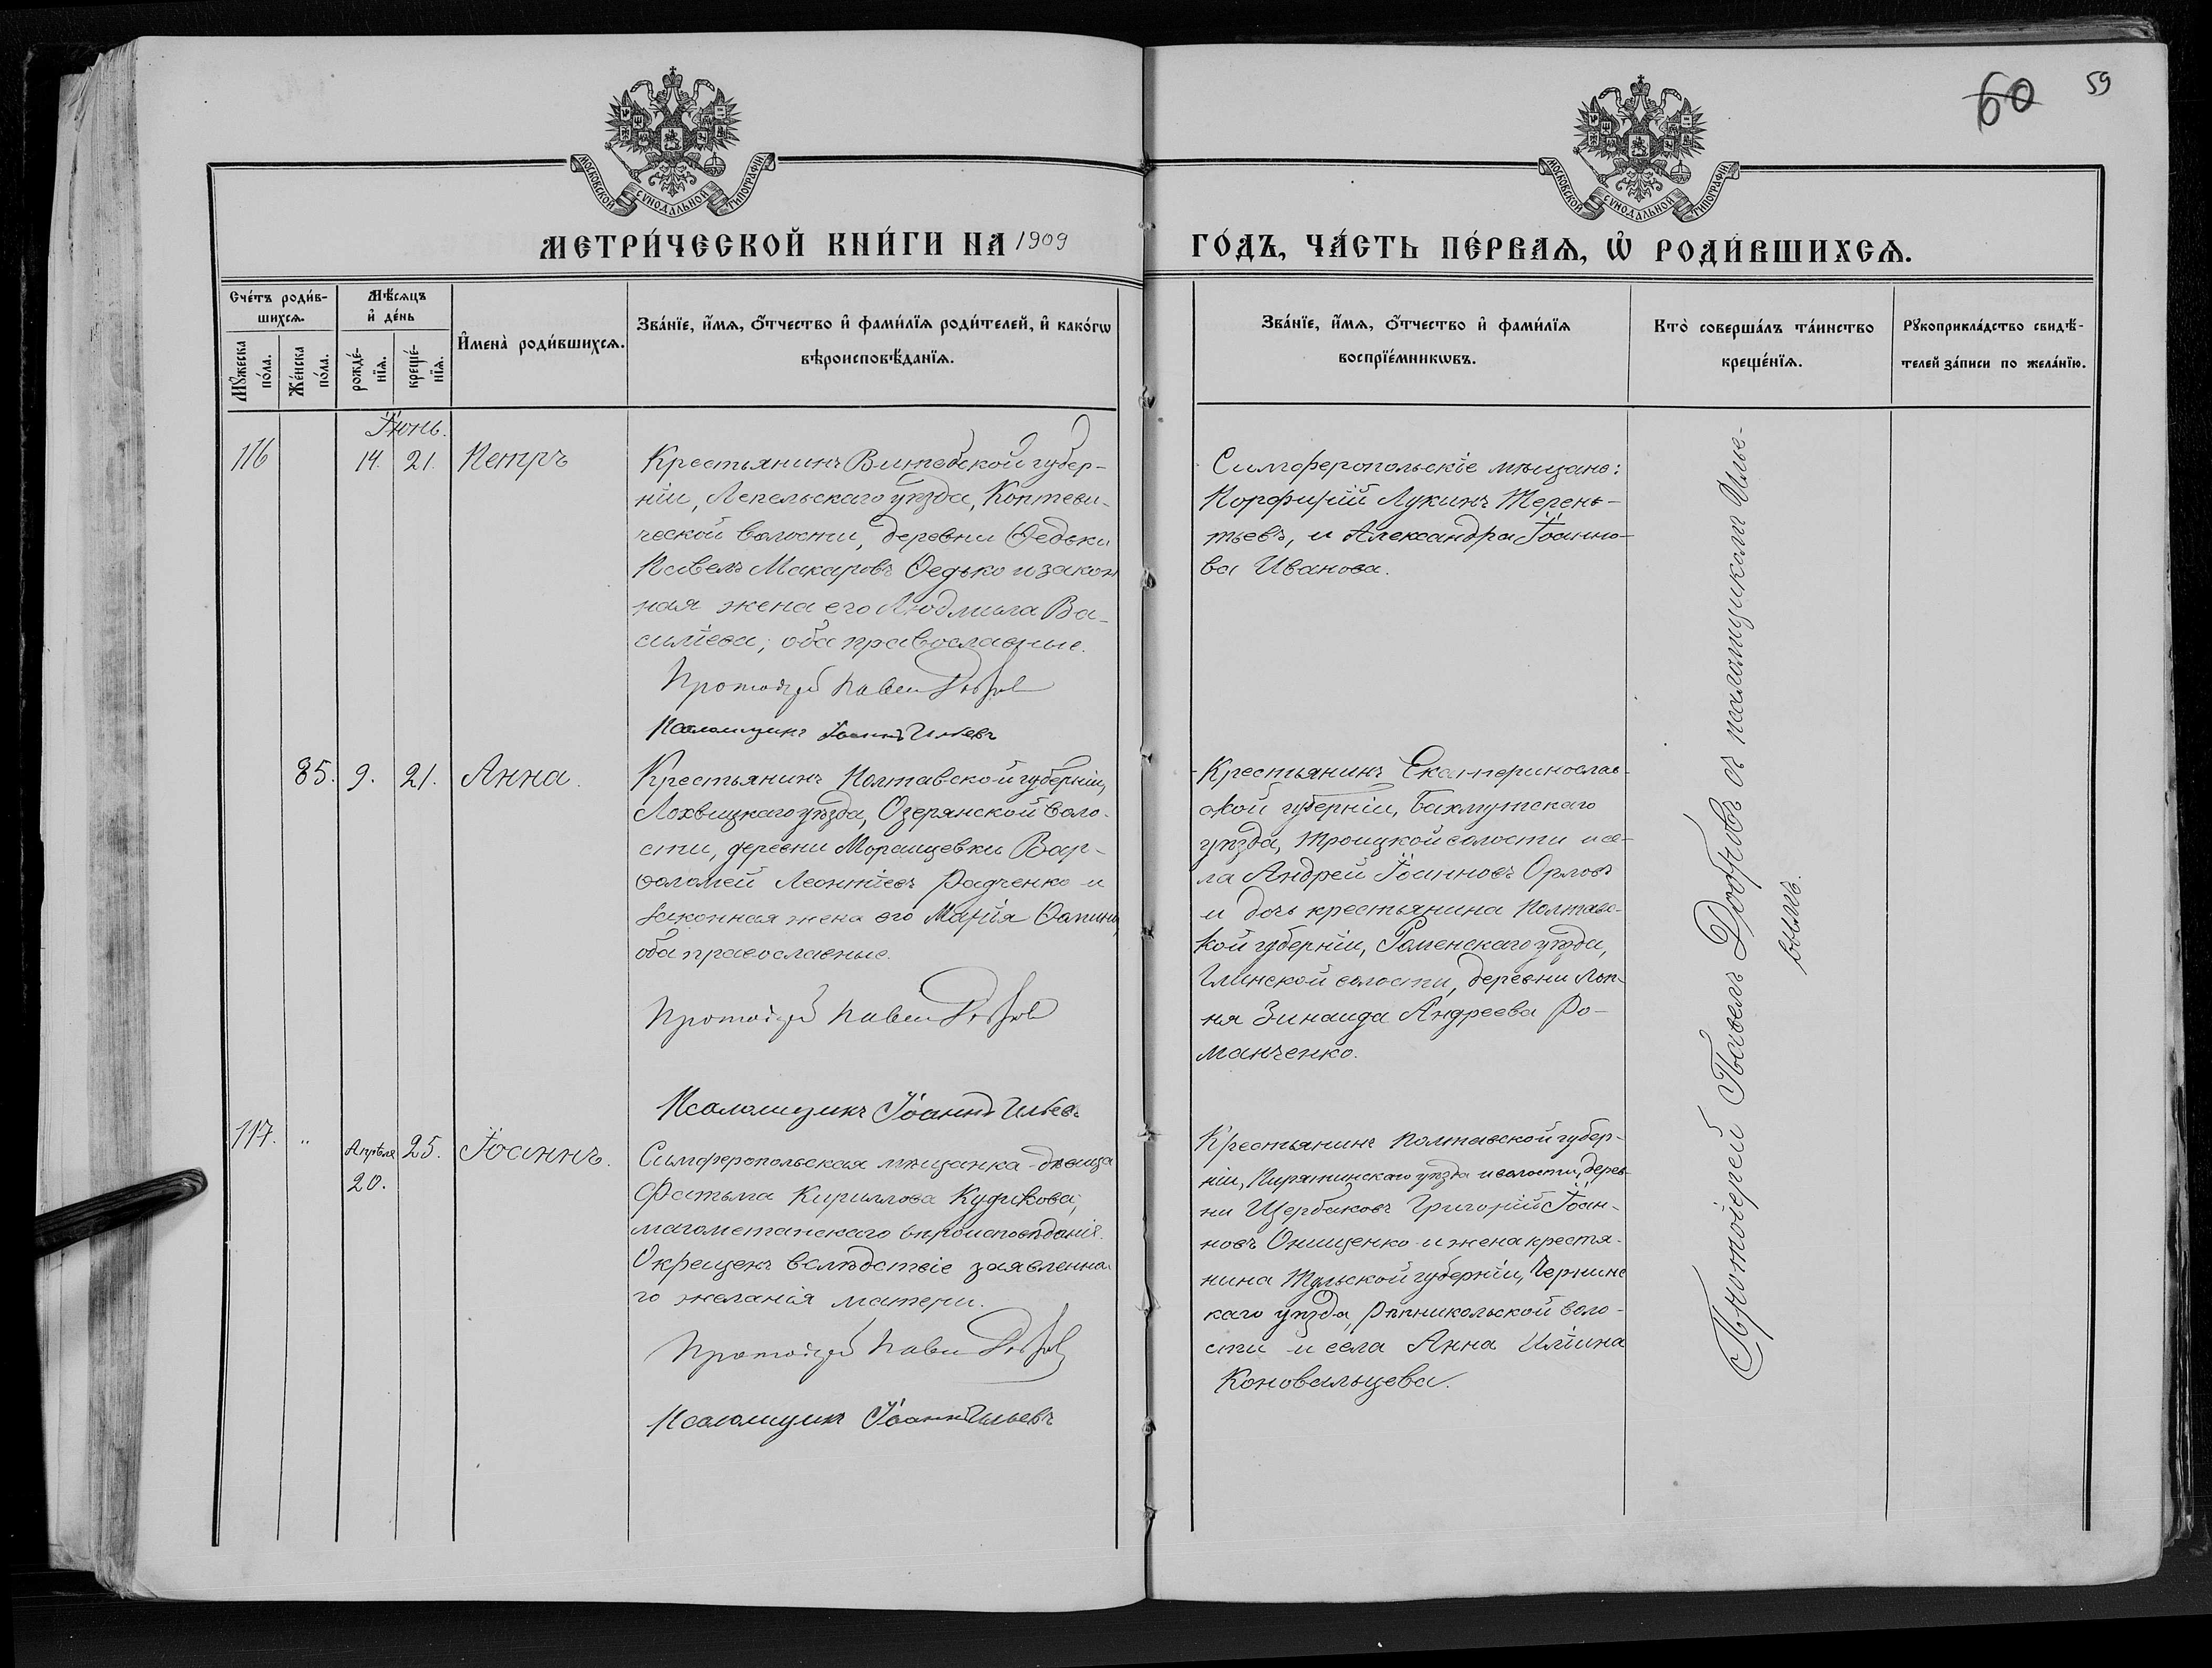 60 59
МОСКОВСКОЙ СѴНОДАЛЬНОЙ ТИПОГРАФІИ
МОСКОВСКОЙ СѴНОДАЛЬНОЙ ТИПОГРАФІИ
МЕТРИ́ЧЕСКОЙ КНИ́ГИ НА 1909
ГО́ДЪ, ЧА́СТЬ ПЕ́РВАѦ, Ѽ РОДИ́ВШИХСѦ.
Сче́тъ роди́в-
шихсѧ.
Мꙋжеска по́ла.
Же́нска по́ла.
Мѣ́сѧцъ
и҆ де́нь
рожде́-
нїѧ.
креще́-
нїѧ.
И҆мена̀ роди́вшихсѧ.
Зва́нїе, и҆́мѧ, ѻ҆́тчество и҆ фами́лїѧ роди́телей, и҆ како́гѡ
вѣроисповѣ́данїѧ.
Зва́нїе, и҆́мѧ, ѻ҆́тчество и҆ фами́лїѧ
воспрїе́мникѡвъ.
Кто̀ соверша́лъ та́инство
креще́нїѧ.
Рꙋкоприкла́дство свидѣ́-
телей за́писи по жела́нїю.
Іюнь.
116 14. 21. Петръ
Крестьянинъ Витебской губер-
ніи, Лепельскаго уѣзда, Коптеви-
ческой волости, деревни Ѳедьки
Павелъ Макаровъ Ѳедько и закон
ная жена его Людмила Ва-
силіева, оба православные.
Протоіерей Павелъ Добровъ
Псаломщикъ Іоаннъ Ильевъ
Симферопольскіе мѣщане:
Порфирій Лукинъ Терень-
тьевъ, и Александра Іоанно-
ва Иванова.
85. 9. 21. Анна.
Крестьянинъ Полтавской губерніи,
Лохвицкаго уѣзда, Озерянской воло-
сти, деревни Вар-
ѳоломей Леонтіевъ Радченко и
законная жена его Марія
оба православные.
Протоіерей Павелъ Добровъ
Псаломщикъ Іоаннъ Ильевъ
Крестьянинъ Екатеринослав-
ской губерніи, Бахмутскаго
уѣзда, Троицкой волости и се-
ла Андрей Іоанновъ Орловъ
и дочь крестьянина Полтавс-
кой губерніи, Роменскаго уѣзда,
Глинской волости, деревни
Зинаида Андреева Ро-
манченко.
117. " Апрѣля 25. Іоаннъ.
20.
Симферопольская мѣщанка-дѣвица
Фатьма Кириллова
магометанскаго вѣроисповѣданія.
Окрещенъ вслѣдствіе заявленна-
го желанія матери.
Протоіерей Павелъ Добровъ
Псаломщикъ Іоаннъ Ильевъ
Крестьянинъ Полтавской губер-
ніи, Пирятинскаго уѣзда и волости, дерев-
ни Щербаковъ Григорій Іоан-
новъ Онищенко и жена крестя-
нина Тульской губерніи, Чернинс
каго уѣзда, воло-
сти и села Анна Иліина
Коновальцева.
Протоіерей Павелъ Добровъ съ псаломщикомъ Илье-
вымъ.